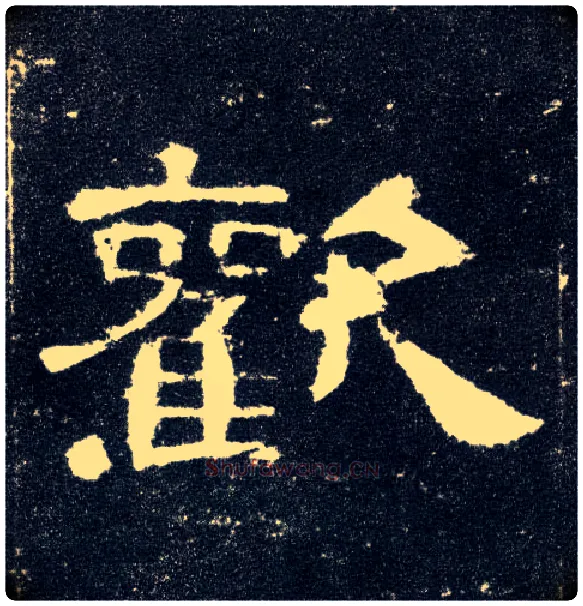 歡
Shufawang.CN